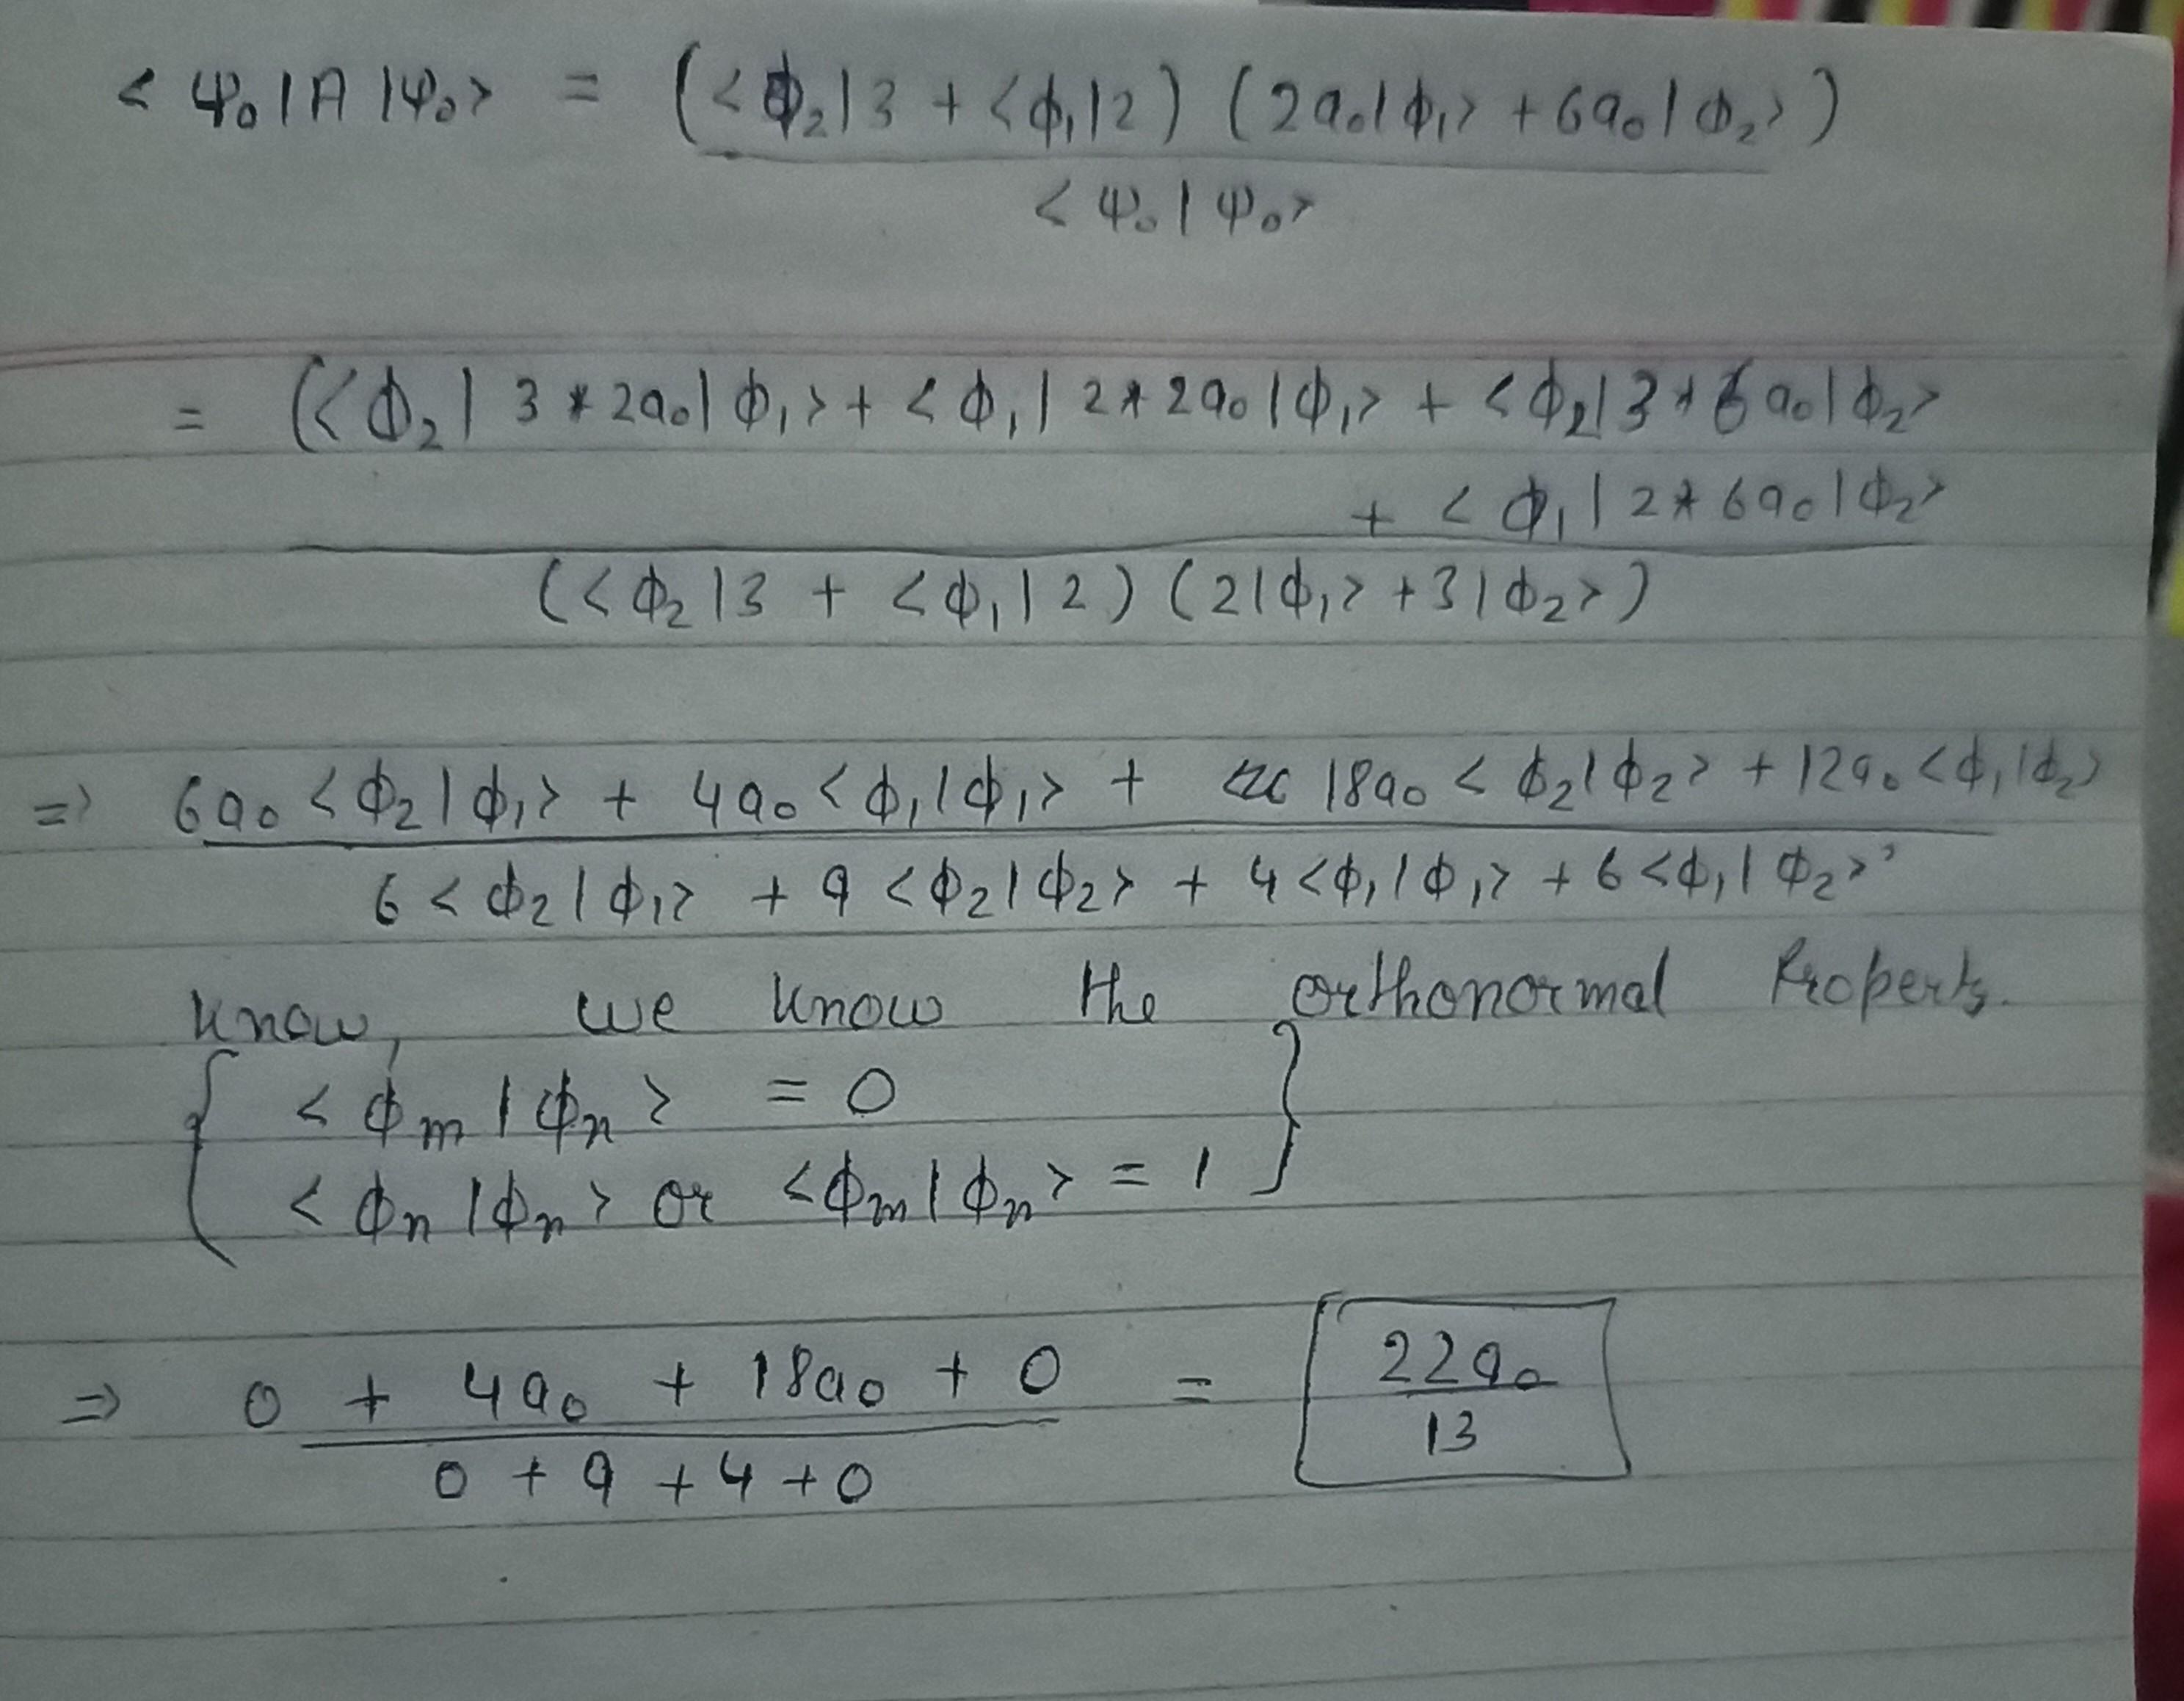 < ψ₀ | A | ψ₀ > = (< ϕ₂ | 3 + < ϕ₁ | 2 ) ( 2a₀ | ϕ₁ > + 6a₀ | ϕ₂ > )
< ψ₀ | ψ₀ >
= (< ϕ₂ | 3 * 2a₀ | ϕ₁ > + < ϕ₁ | 2 * 2a₀ | ϕ₁ > + < ϕ₂ | 3 * 6a₀ | ϕ₂ >
+ < ϕ₁ | 2 * 6a₀ | ϕ₂ >
( < ϕ₂ | 3 + < ϕ₁ | 2 ) ( 2 | ϕ₁ > + 3 | ϕ₂ > )
=> 6a₀ < ϕ₂ | ϕ₁ > + 4a₀ < ϕ₁ | ϕ₁ > + 18a₀ < ϕ₂ | ϕ₂ > + 12a₀ < ϕ₁ | ϕ₂ >
6 < ϕ₂ | ϕ₁ > + 9 < ϕ₂ | ϕ₂ > + 4 < ϕ₁ | ϕ₁ > + 6 < ϕ₁ | ϕ₂ >
know, we know the orthonormal Property.
{ < ϕm | ϕn > = 0 }
< ϕn | ϕn > or < ϕm | ϕn > = 1
=> 0 + 4a₀ + 18a₀ + 0 = 22a₀
0 + 9 + 4 + 0 13